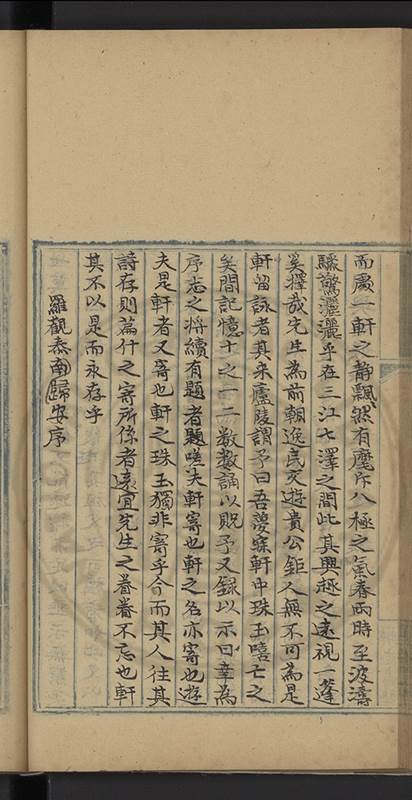 而處一軒之靜飄然有麾斥八極之氣春雨時至波濤
驟驚灑灑乎在三江七澤之間此其興趣之遠視一蓬
奚擇哉先生為前朝逸民交遊貴公鉅人無不可為是
軒留詠者其來廬陵謂予曰吾夢寐軒中珠玉嘻亡之
矣間記憶十之一二数数誦以貺予又録以示曰幸為
序志之將續有題者題嗟夫軒寄也軒之名亦寄也遊
夫是軒者又寄也軒之珠玉獨非寄乎今而其人往其
詩存則篇什之寄所係者遠宜先生之眷眷不忘也軒
其不以是而永存乎
羅觀泰南歸安序